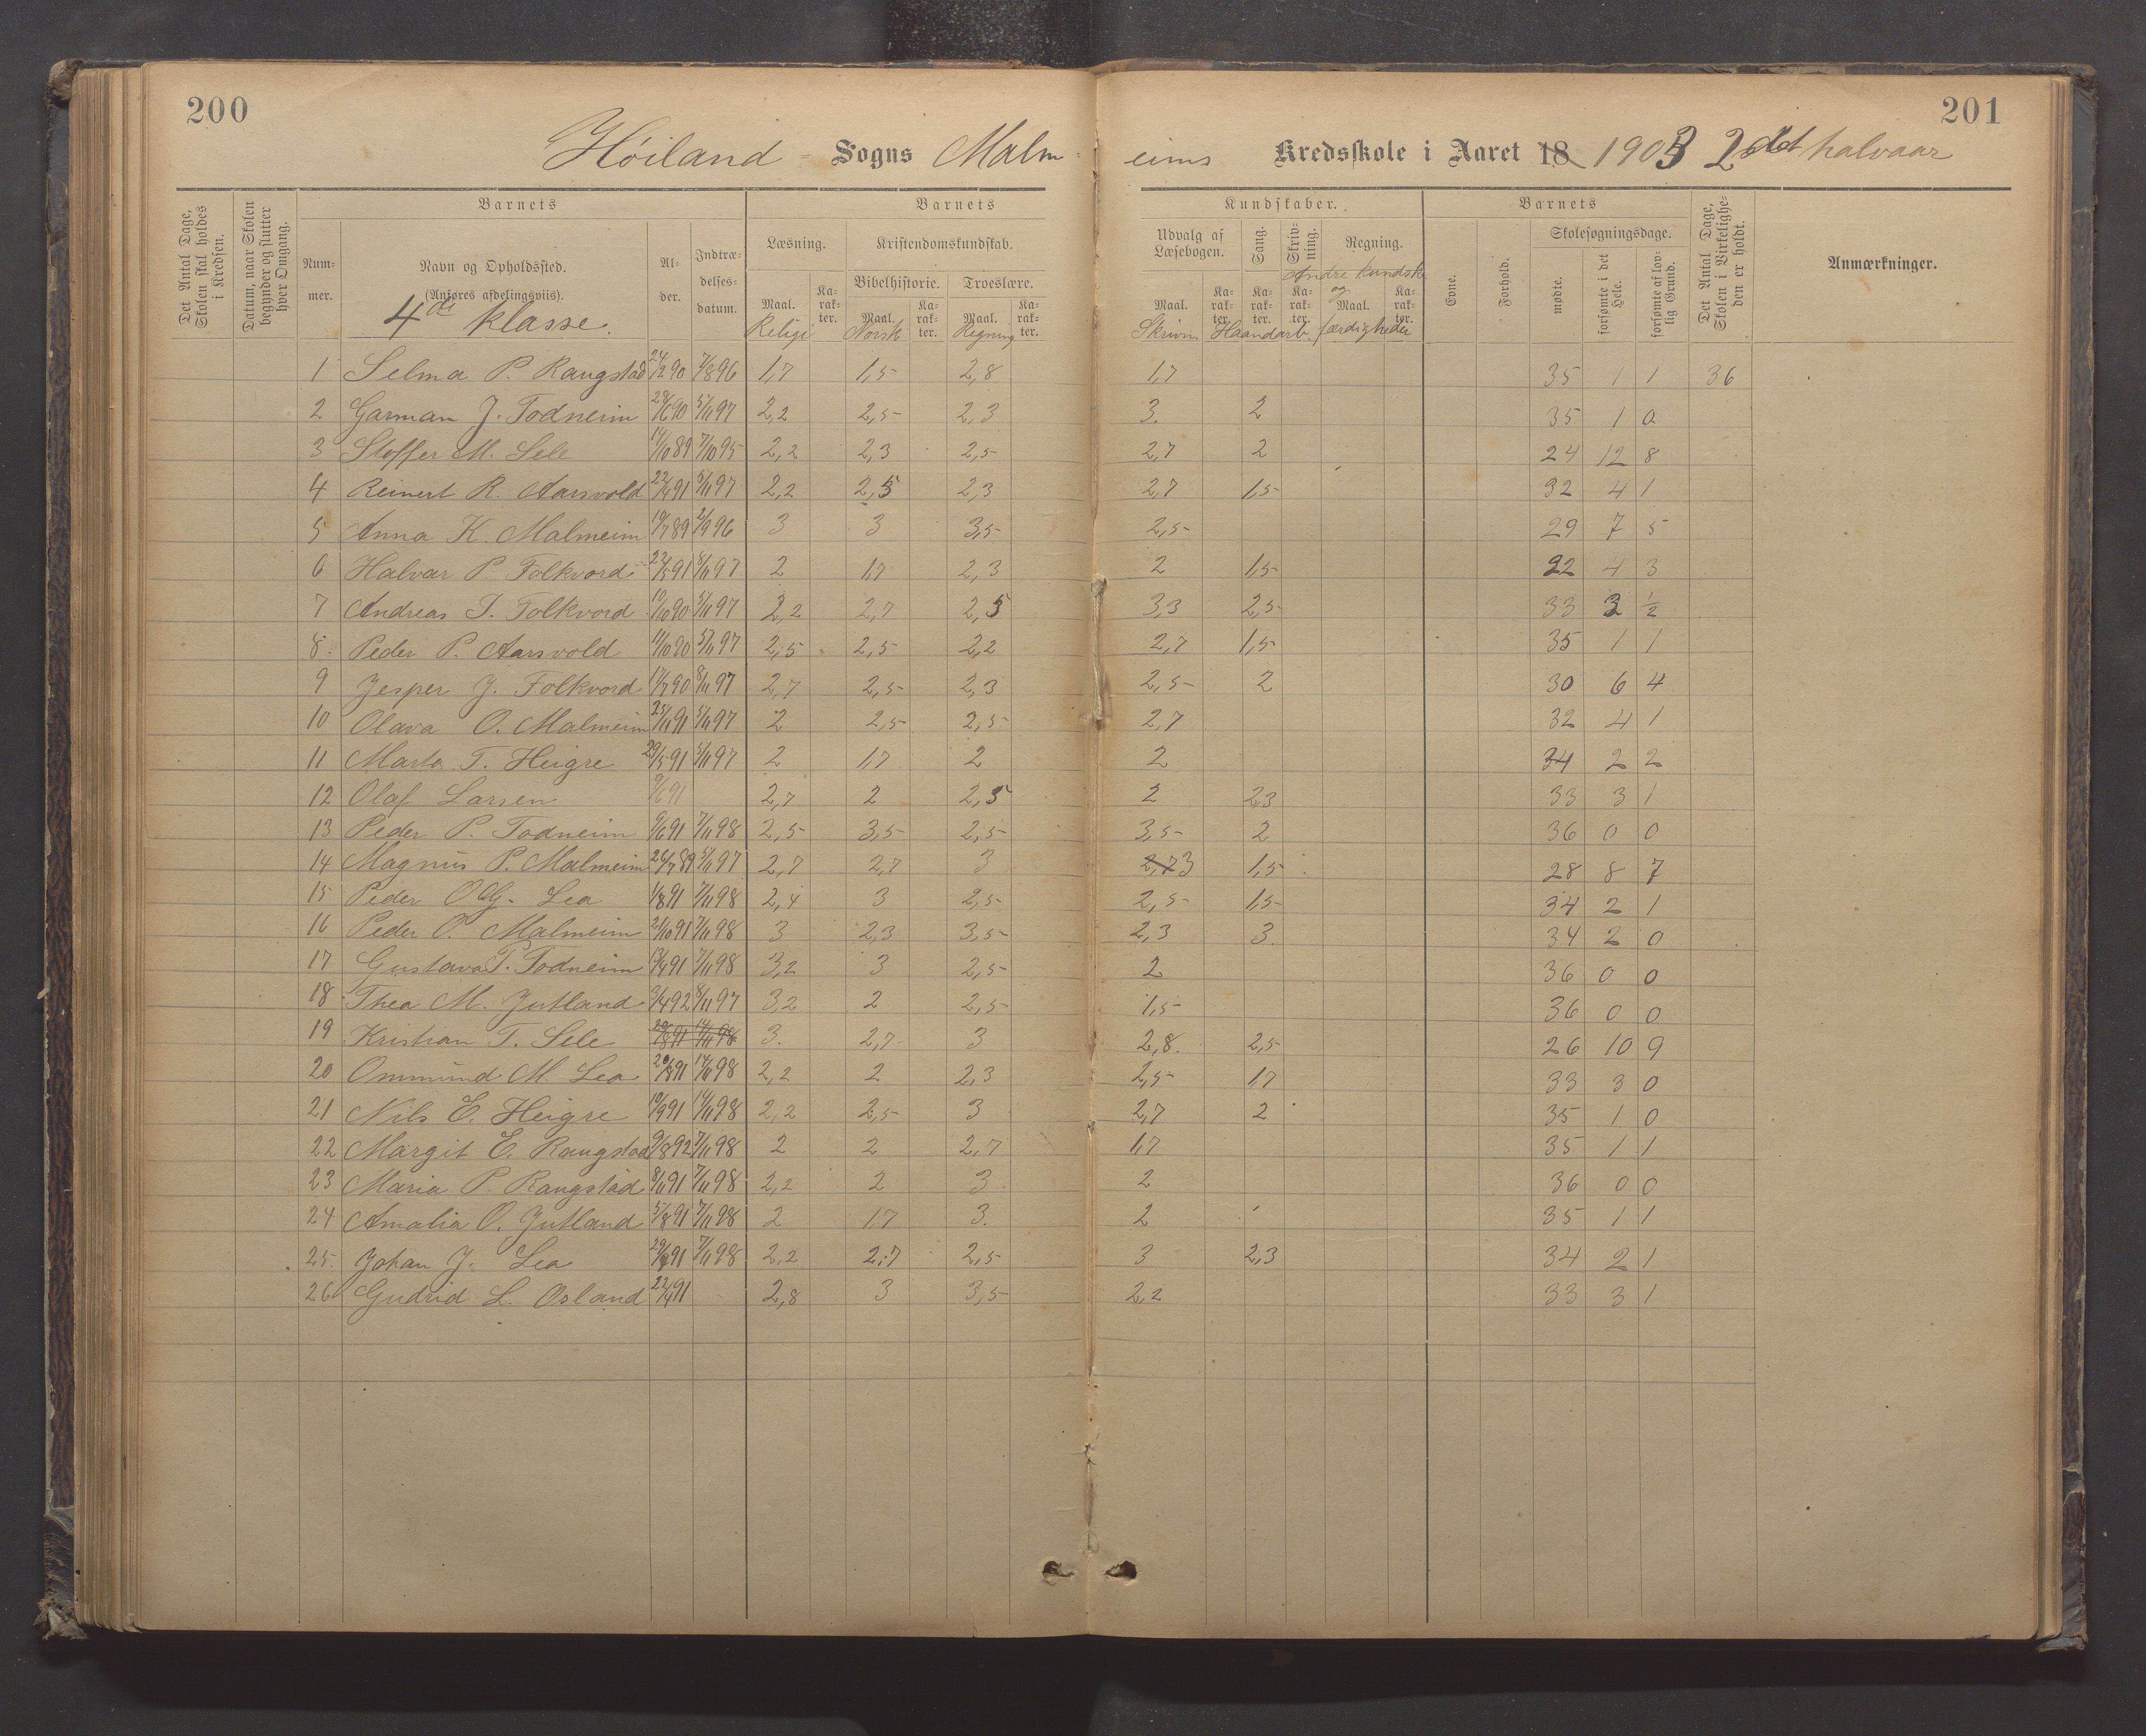 200
201
Høiland Sogns Malm-
eims Kredsskole i Aaret 18 1903 2det halvaar
Det Antal Dage, Skolen skal holdes i Kredsen.
Datum, naar Skolen begynder og slutter hver Omgang.
Barnets
Barnets
Kundskaber.
Barnets
Num-mer.
Navn og Opholdssted.
(Anføres afdelingsviis).
4de klasse.
Al-der.
Indtræ-delses-datum.
Læsning.
Kristendomskundskab.
Bibelhistorie.
Troeslære.
Maal.
Ka-rak-ter.
Maal.
Ka-rak-ter.
Maal.
Ka-rak-ter.
Religi
Norsk
Regning
Udvalg af Læsebogen.
Sang.
Skriv-ning.
Regning.
Andre kundsk.
og
færdigheder
Maal.
Ka-rak-ter.
Ka-rak-ter.
Ka-rak-ter.
Maal.
Ka-rak-ter.
Skrivn.
Haandarb.
Evne.
Forhold.
Skolesøgningsdage.
mødte.
forsømte i det Hele.
forsømte af lov-lig Grund.
Det Antal Dage, Skolen i Virkelighe-den er holdt.
Anmærkninger.
1 Selma P. Raugstad 24/2 90 7/8 96 1,7 1,5 2,8 1,7 35 1 1 36
2 Garman J. Todneim 28/6 90 5/11 97 2,2 2,5 2,3 3. 2 35 1 0
3 Stoffer M. Sele 14/10 89 7/10 95 2,2 2,3 2,5 2,7 2 24 12 8
4 Reinert R. Aarsvold 22/4 91 5/11 97 2,2 2,5 2,3 2,7 1,5 32 4 1
5 Anna K. Malmeim 19/7 89 2/9 96 3 3 3,5 2,5 29 7 5
6 Halvar P. Folkvord 22/5 91 8/11 97 2 1,7 2,3 2 1,5 22 4 3
7 Andreas T. Folkvord 10/10 90 5/11 97 2,2 2,7 2,5 3,3 2,5 33 3 1/2
8. Peder P. Aarsvold 11/10 90 5/11 97 2,5 2,5 2,2 2,7 1,5 35 1 1
9 Jesper J. Folkvord 17/7 90 8/11 97 2,7 2,5 2,3 2,5 2 30 6 4
10 Olava O. Malmeim 25/11 91 5/11 97 2 2,5 2,5 2,7 32 4 1
11 Marta T. Heigre 29/5 91 5/11 97 2 1,7 2 2 34 2 2
12 Olaf Larsen 9/6 91 2,7 2 2,5 2 2,3 33 3 1
13 Peder P. Todneim 9/6 91 7/11 98 2,5 3,5 2,5 3,5 2 36 0 0
14 Magnus P. Malmeim 26/7 89 5/11 97 2,7 2,7 3 2,7 3 1,5 28 8 7
15 Peder O. G. Lea 1/8 91 7/11 98 2,4 3 2,5 2,5 1,5 34 2 1
16 Peder O. Malmeim 21/10 91 7/11 98 3 2,3 3,5 2,3 3. 34 2 0
17 Gustava P. Todneim 13/4 91 7/11 98 3,2 3 2,5 2 36 0 0
18 Thea M. Jutland 3/4 92 8/11 97 3,2 2 2,5 1,5 36 0 0
19 Kristian T. Sele 20/8 91 14/11 98 3. 2,7 3 2,8 2,5 26 10 9
20 Ommund M. Lea 20/8 91 14/11 98 2,2 2 2,3 2,5 1,7 33 3 0
21 Nils E. Heigre 10/9 91 14/11 98 2,2 2,5 3 2,7 2 35 1 0
22 Margit E. Raugstad 9/8 92 7/11 98 2 2 2,7 1,7 35 1 1
23 Maria P. Raugstad 8/11 91 7/11 98 2,2 2 3 2 36 0 0
24 Amalia O. Jutland 5/8 91 7/11 98 2 1,7 3. 2 35 1 1
25. Johan J. Lea 29/9 91 7/11 98 2,2 2,7 2,5 3 2,3 34 2 1
26 Gudrid L. Osland 22/4 91 2,8 3 3,5 2,2 33 3 1